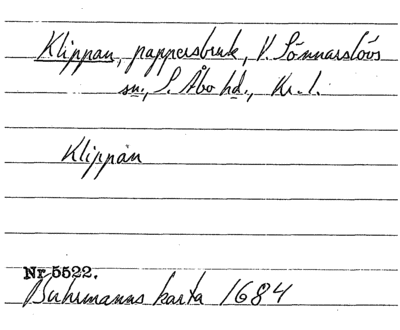 Klippan, pappersbruk, V. Sönnarslövs
sn., S. Åbo hd., Kr. l.
Klippan
Nr 5522.
Buhrmanns karta 1684